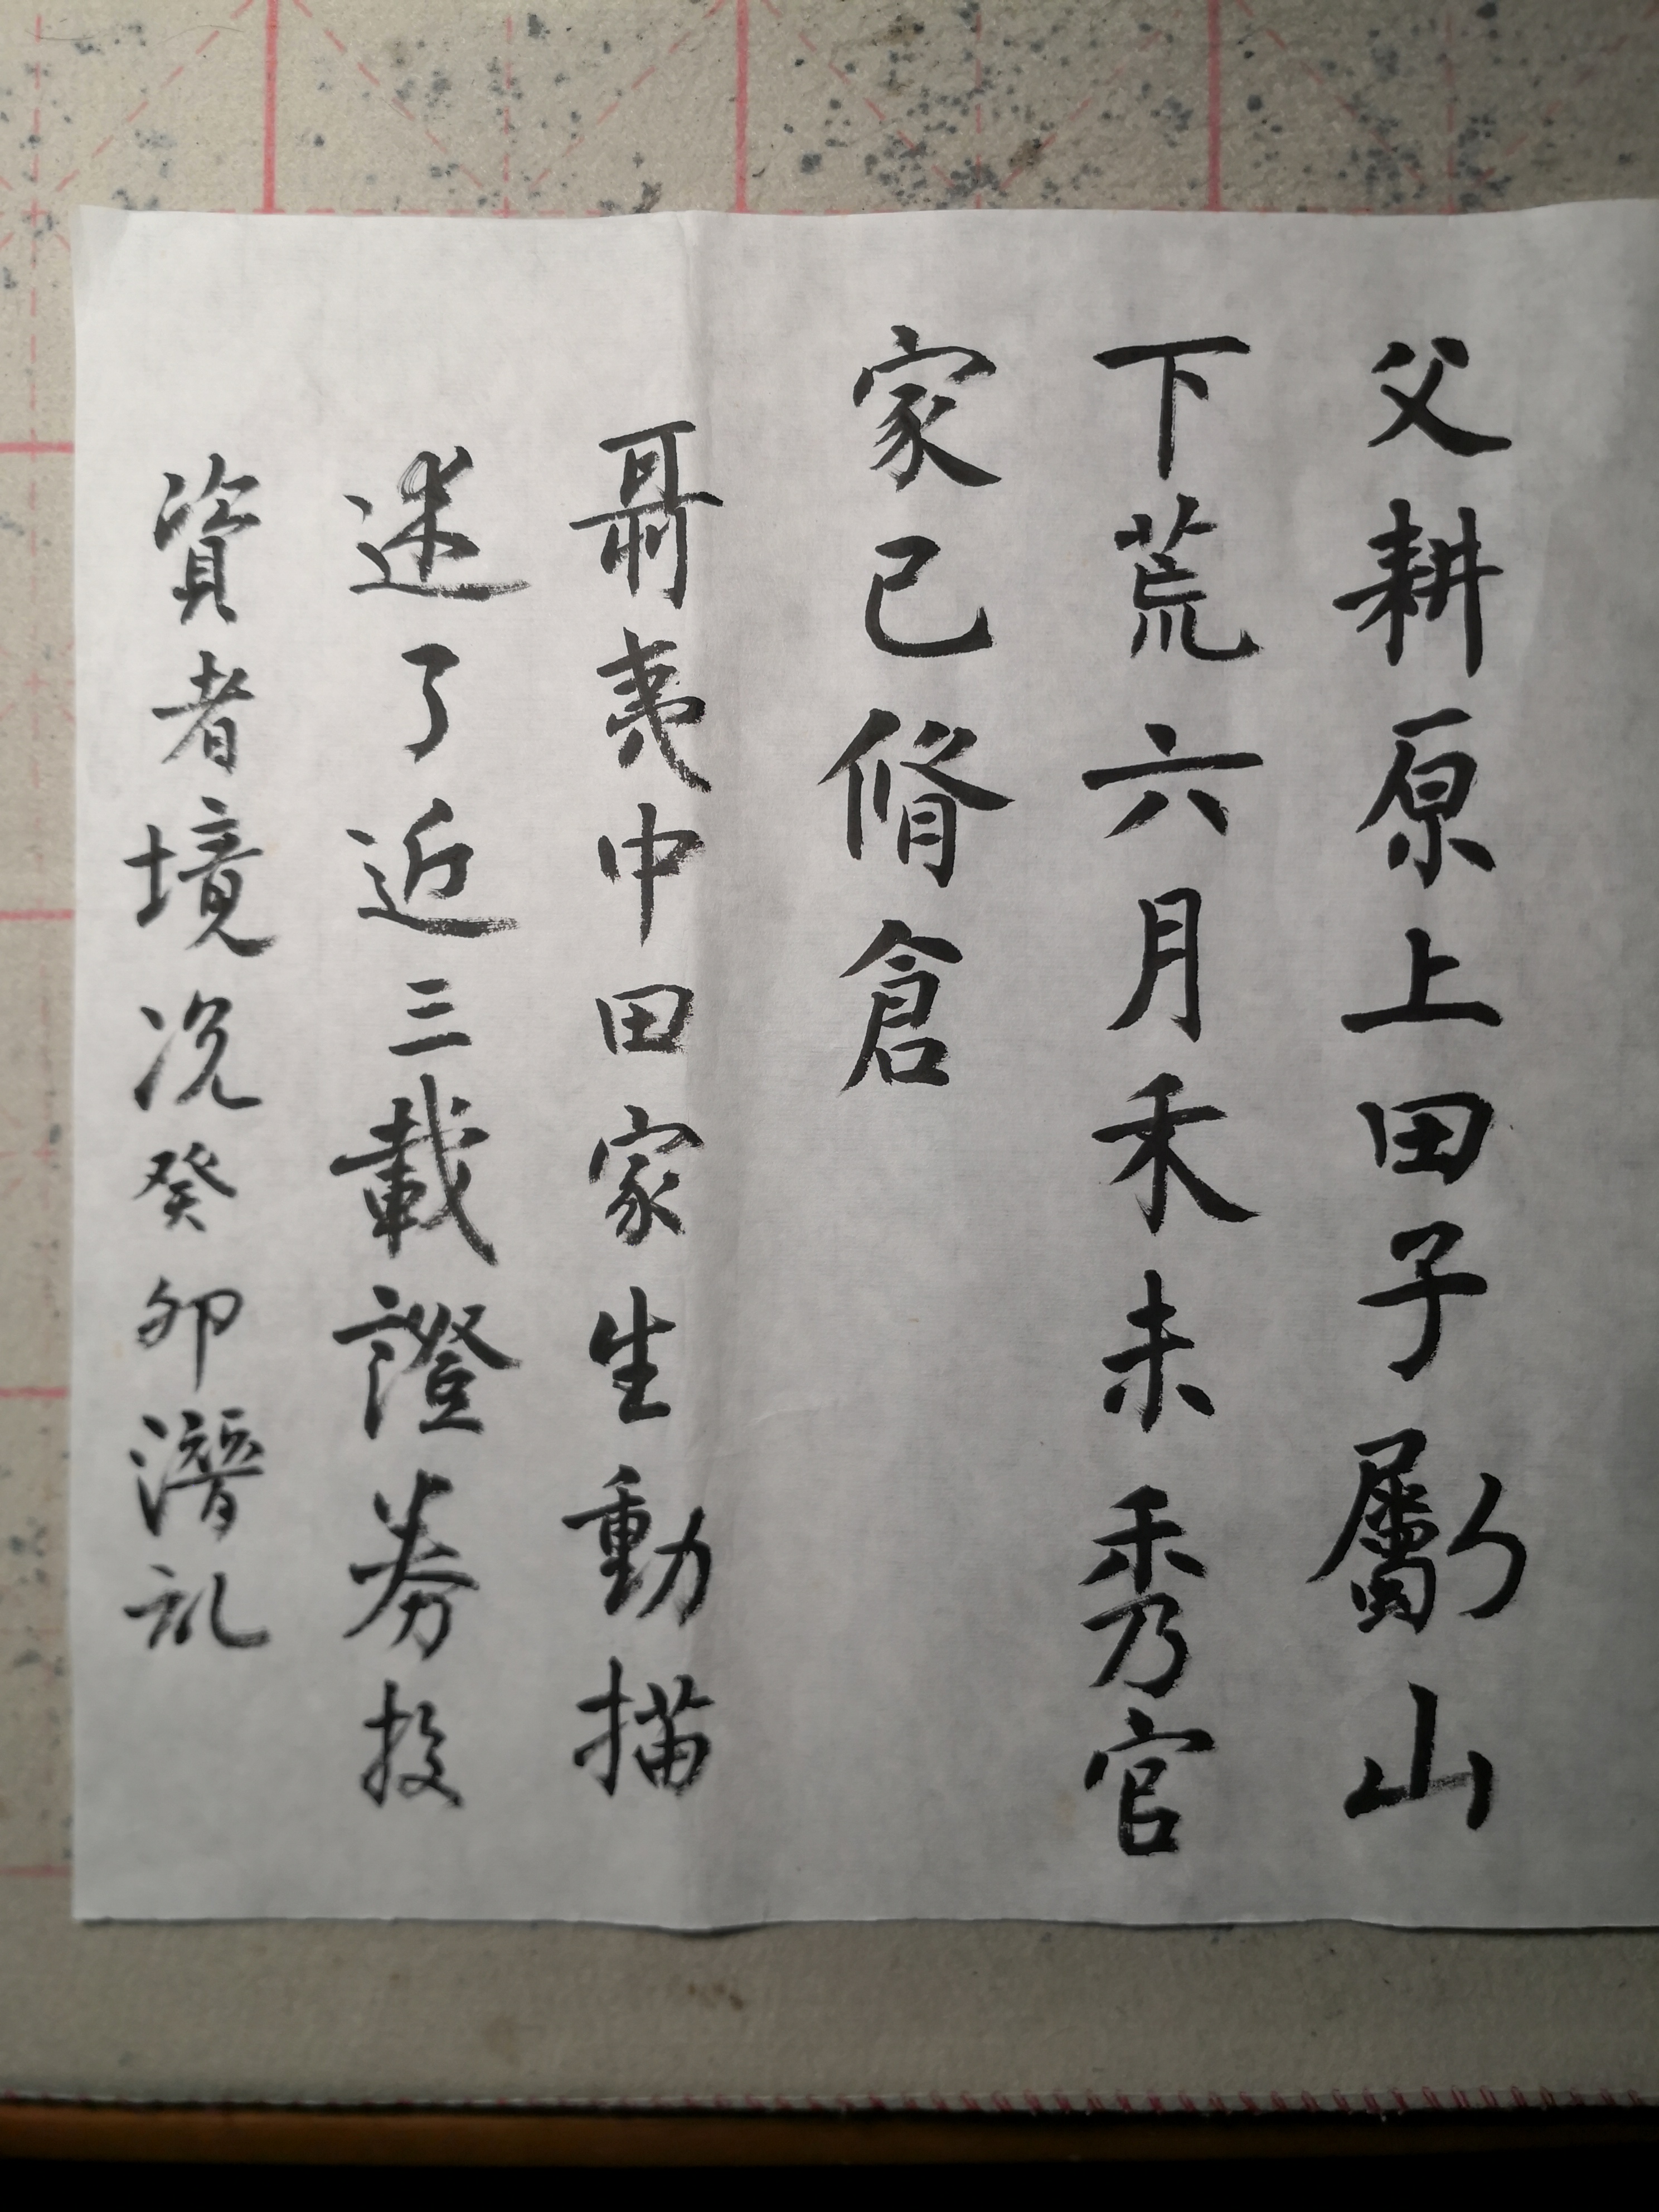 父耕原上田子劚山
下荒六月禾未秀官
家已脩倉
聶夷中田家生動描
述了近三載證券投
資者境况癸卯潛乩